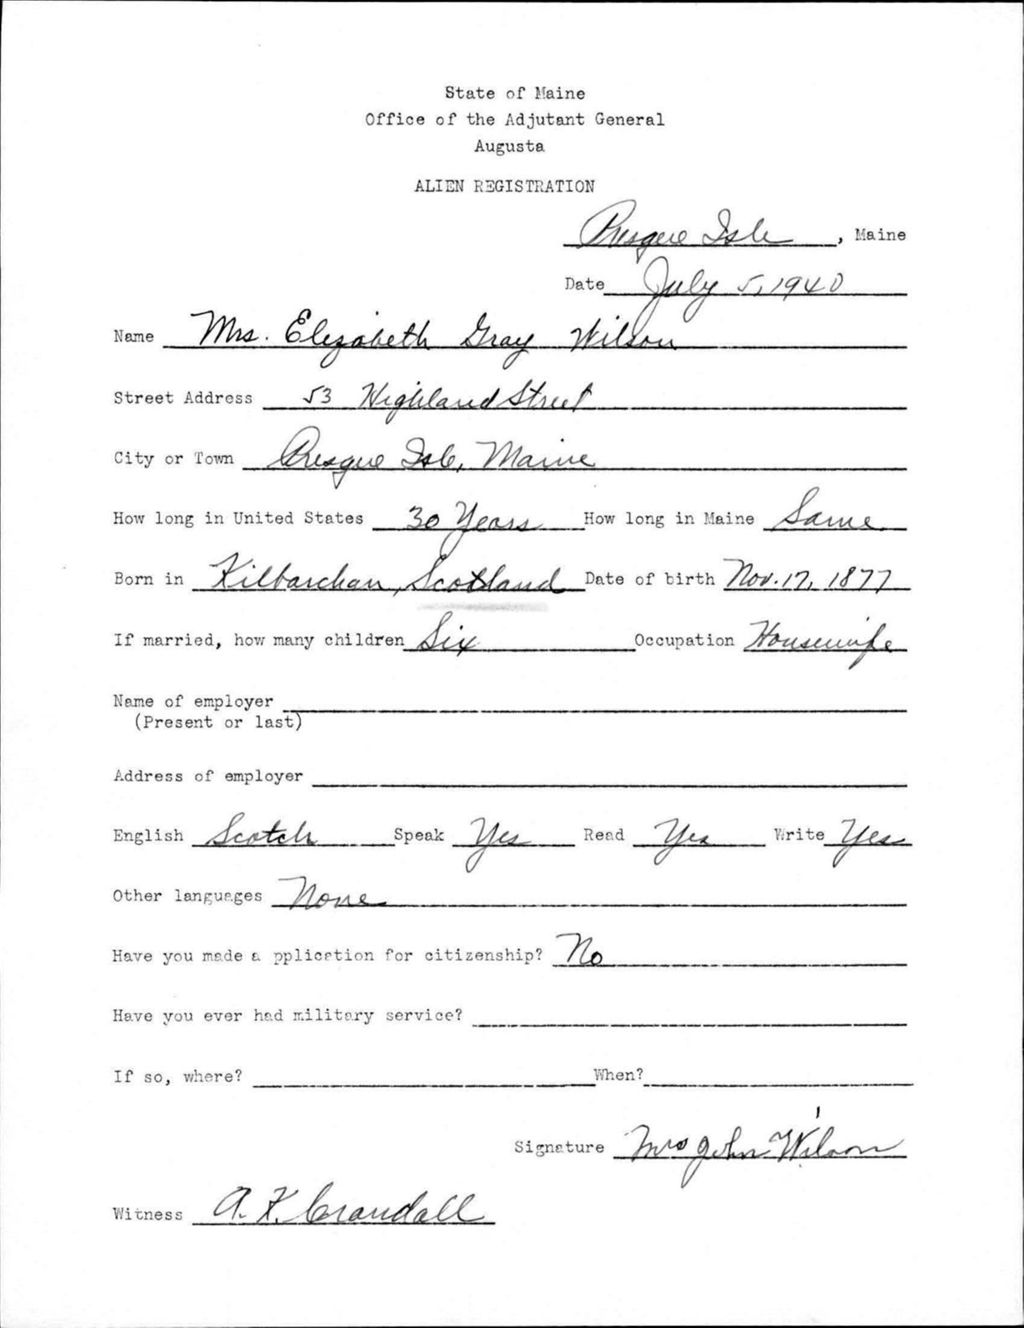 State of Maine
Office of the Adjutant General
Augusta
ALIEN REGISTRATION
Presque Isle, Maine
Date July 5, 1940
Name Mrs. Elizabeth Gray Wilson
Street Address 53 Highland Street
City or Town Presque Isle, Maine
How long in United States 30 Years How long in Maine Same
Born in Kilbarchan, Scotland Date of birth Nov. 17, 1877
If married, how many children Six Occupation Housewife
Name of employer
(Present or last)
Address of employer
English Scotch Speak Yes Read Yes Write Yes
Other languages None
Have you made a pplication for citizenship? No
Have you ever had military service?
If so, where? When?
Signature Mrs John Wilson
Witness A. K. Crandall